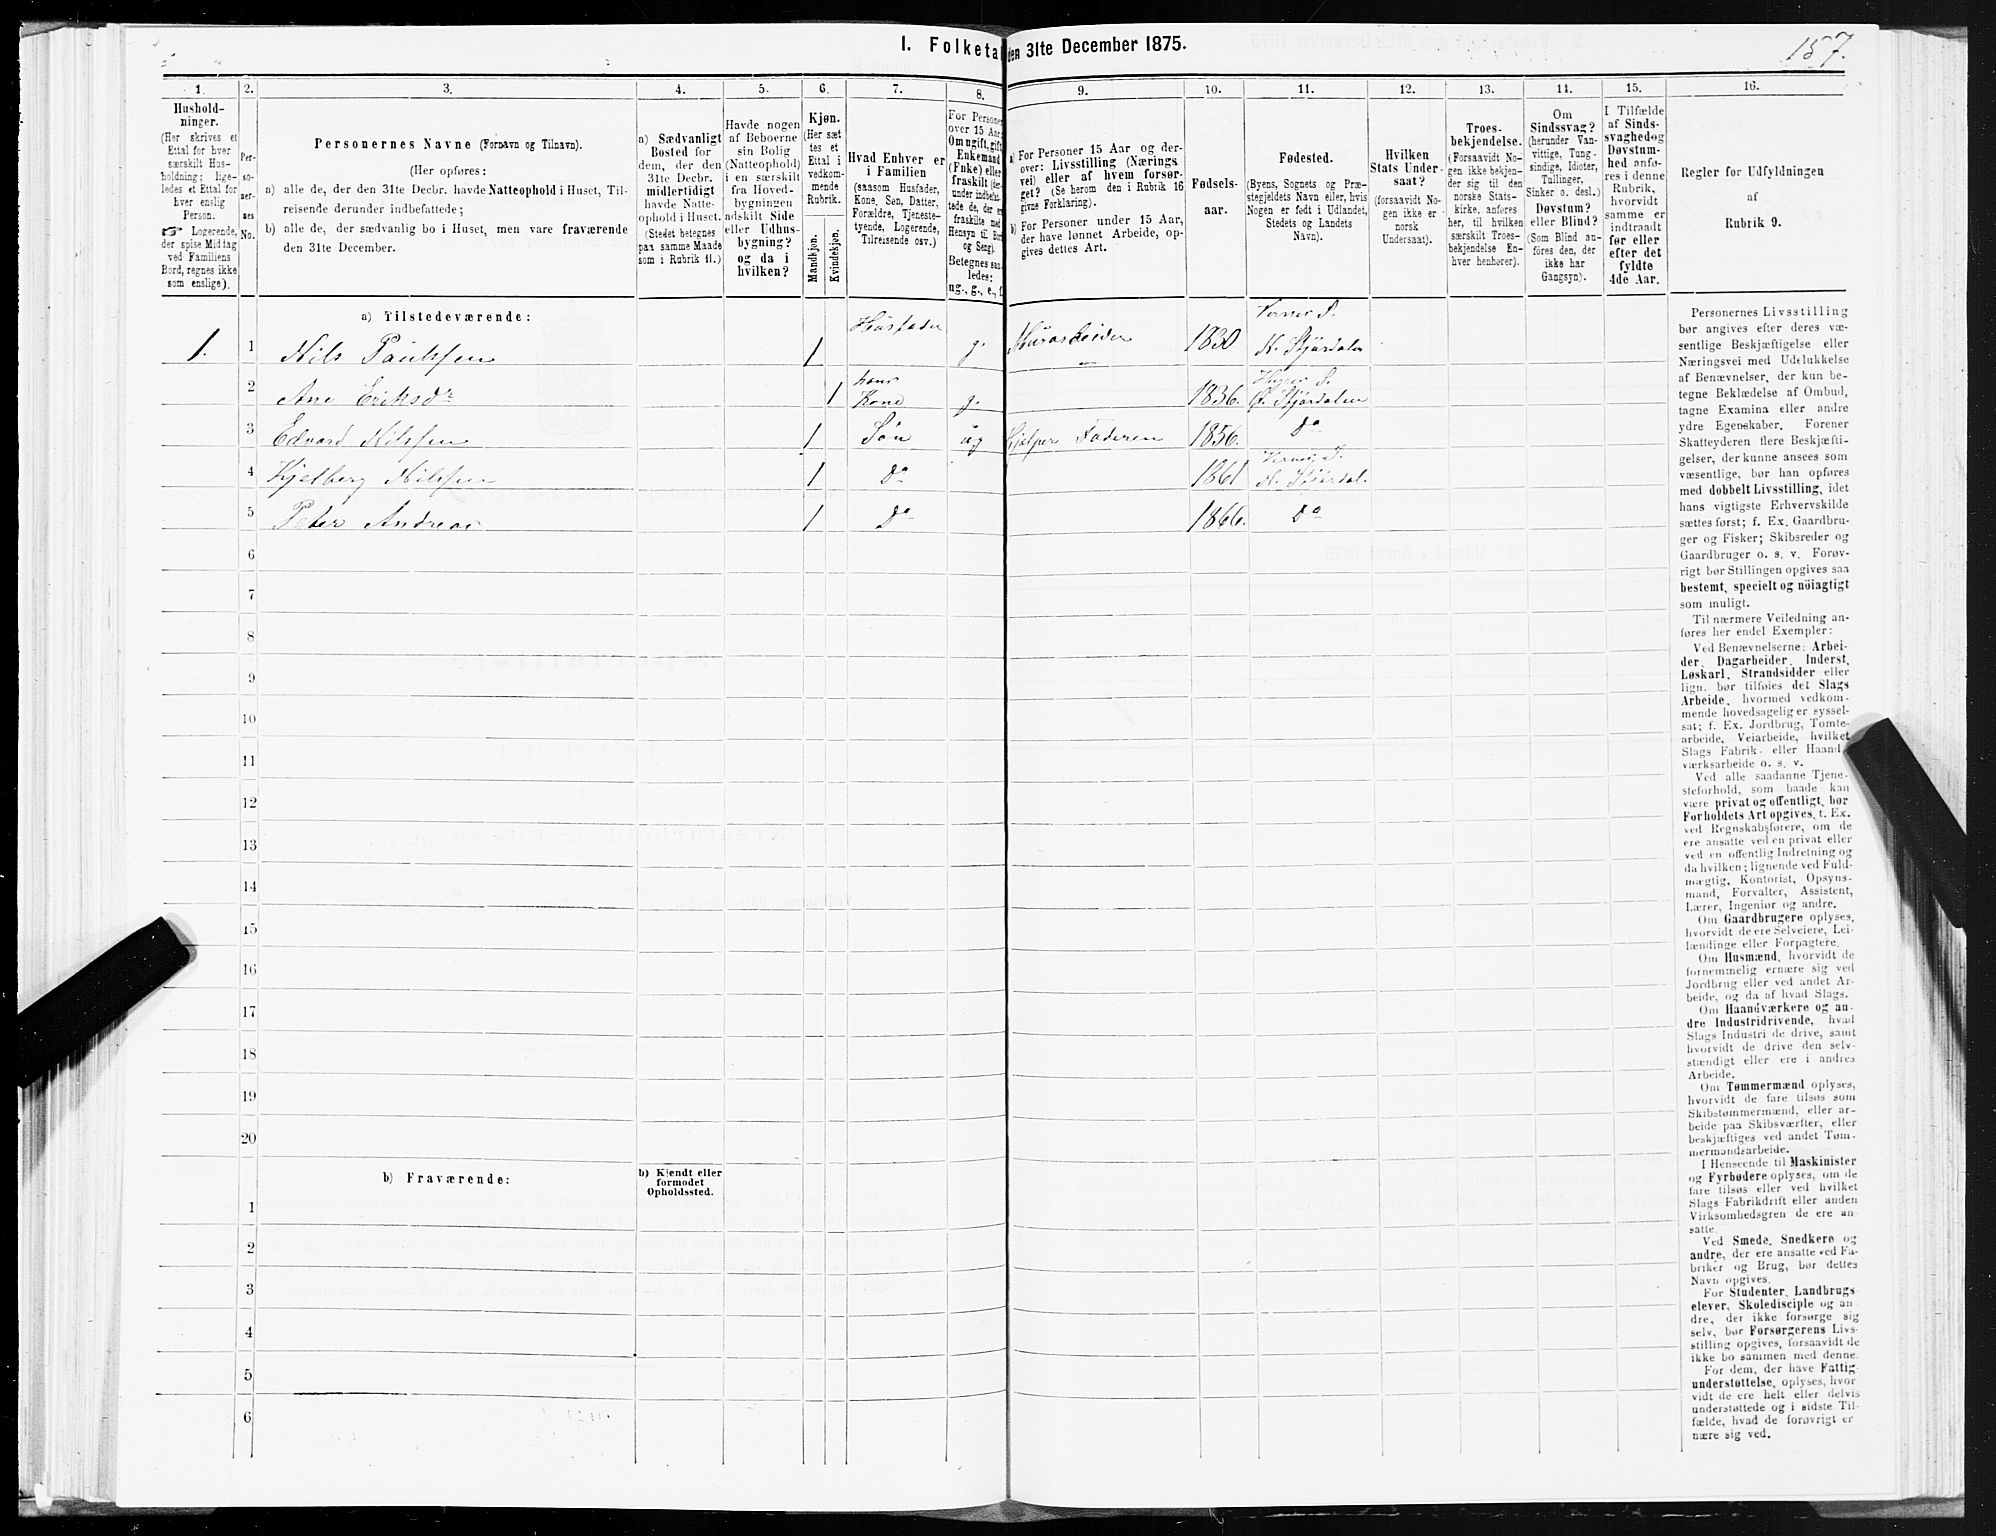 I. Folketa den 31te December 1875.
157.
1.
Hushold-
ninger.
(Her skrives et
Ettal for hver
særskilt Hus-
holdning; lige-
ledes et Ettal for
hver enslig
Person.
☞ Logerende,
der spise Middag
ved Familiens
Bord, regnes ikke
som enslige).
2.
Per-
so-
ner-
nes
No.
3.
Personernes Navne (Fornavn og Tilnavn).
(Her opføres:
a) alle de, der den 31te Decbr. havde Natteophold i Huset, Til-
reisende derunder indbefattede;
b) alle de, der sædvanlig bo i Huset, men vare fraværende
den 31te December.
4.
a) Sædvanligt
Bosted for
dem, der den
31te Decbr.
midlertidigt
havde Natte-
ophold i Huset.
(Stedet betegnes
paa samme Maade
som i Rubrik 11.)
5.
Havde nogen
af Beboerne
sin Bolig
(Natteophold)
i en særskilt
fra Hoved-
bygningen
adskilt Side
eller Udhus-
bygning?
og da i
hvilken?
6.
Kjøn.
(Her sæt
tes et
Ettal i
vedkom-
mende
Rubrik.
Mandkjøn.
Kvindekjøn.
7.
Hvad Enhver er
i Familien
(saasom Husfader,
Kone, Søn, Datter,
Forældre, Tjeneste-
tyende, Logerende,
Tilreisende osv.)
8.
For Personer
over 15 Aar:
Om ugift, gift,
Enkemand
(Enke) eller
fraskilt (der-
under indbefat-
tede de, der er
fraskilte med
Hensyn til Bord
og Seng).
Betegnes saa-
ledes:
ug., g., e., f.
9.
a) For Personer 15 Aar og der-
over: Livsstilling (Nærings
vei) eller af hvem forsør-
get? (Se herom den i Rubrik 16
givne Forklaring).
b) For Personer under 15 Aar,
der have lønnet Arbeide, op-
gives dettes Art.
10.
Fødsels-
aar.
11.
Fødested.
(Byens, Sognets og Præ-
stegjeldets Navn eller, hvis
Nogen er født i Udlandet,
Stedets og Landets
Navn).
12.
Hvilken
Stats Under-
saat?
(forsaavidt No-
gen ikke er
norsk
Undersaat).
13.
Troes-
bekjendelse.
(Forsaavidt No-
gen ikke bekjen-
der sig til den
norske Stats-
kirke, anføres
her, til hvilken
særskilt Troes-
bekjendelse En-
hver henhører).
14.
Om
Sindssvag?
(herunder Van-
vittige, Tung-
sindige, Idioter,
Tullinger,
Sinker o. desl.)
Døvstum?
eller Blind?
(Som Blind an-
føres den, der
ikke har
Gangsyn).
15.
I Tilfælde
af Sinds-
svaghed og
Døvstum-
hed anfø-
res i denne
Rubrik,
hvorvidt
samme er
indtraadt
før eller
efter det
fyldte
4de Aar.
16.
Regler for Udfyldningen
af
Rubrik 9.
a) Tilstedeværende:
1. 1 Nils Paulsen 1 Husfader g. Murarbeider 1830 Verner S. N. Stjørdalen
2 Ane Eriksdr 1 hans Kone g. 1836. Hegre S. Ø. Stjørdalen
3 Edvard Nilssen 1 Søn ug Hjelper Faderen 1856. Do
4 Kjelberg Nilssen 1 Do 1861 Verner S. N. Stjørdal.
5 Peter Andreas 1 Do 1866. Do
6
7
8
9
10
11
12
13
14
15
16
17
18
19
20
b) Fraværende:
b) Kjendt eller
formodet
Opholdssted.
1
2
3
4
5
6
Personernes Livsstilling
bør angives efter deres væ-
sentlige Beskjæftigelse eller
Næringsvei med Udelukkelse
af Benævnelser, der kun be-
tegne Beklædelse af Ombud,
tagne Examina eller andre
ydre Egenskaber. Forener
Skatteyderen flere Beskjæfti-
gelser, der kunne ansees som
væsentlige, bør han opføres
med dobbelt Livsstilling, idet
hans vigtigste Erhvervskilde
sættes først; f. Ex. Gaardbru-
ger og Fisker; Skibsreder og
Gaardbruger o. s. v. Forøv-
rigt bør Stillingen opgives saa
bestemt, specielt og nöiagtigt
som muligt.
Til nærmere Veiledning an-
føres her endel Exempler:
Ved Benævnelserne: Arbei-
der, Dagarbeider, Inderst,
Løskarl, Strandsidder eller
lign. bør tilføies det Slags
Arbeide, hvormed vedkom-
mende hovedsagelig er syssel-
sat; f. Ex. Jordbrug, Tomte-
arbeide, Veiarbeide, hvilket
Slags Fabrik- eller Haand-
værksarbeide o. s. v.
Ved alle saadanne Tjene-
steforhold, som baade kan
være privat og offentligt, bør
Forholdets Art opgives, t. Ex.
ved Regnskabsførere, om de
ere ansatte ved en privat eller
ved en offentlig Indretning og
da hvilken; lignende ved Fuld-
mægtig, Kontorist, Opsyns-
mand, Forvalter, Assistent,
Lærer, Ingeniør og andre.
Om Gaardbrugere oplyses,
hvorvidt de ere Selveiere, Lei-
lændinge eller Forpagtere.
Om Husmænd, hvorvidt de
fornemmelig ernære sig ved
Jordbrug eller ved andet Ar-
beide, og da af hvad Slags.
Om Haandværkere og an-
dre Industridrivende, hvad
Slags Industri de drive, samt
hvorvidt de drive den selv-
stændigt eller ere i andres
Arbeide.
Om Tømmermænd oplyses,
hvorvidt de fare tilsøs som
Skibstømmermænd, eller ar-
beide paa Skibsværfter, eller
beskjæftiges ved andet Tøm-
mermandsarbeide.
I Henseende til Maskinister
og Fyrbødere oplyses, om de
fare tilsøs eller ved hvilket
Slags Fabrikdrift eller anden
Virksomhedsgren de ere an-
satte.
Ved Smede, Snedkere og
andre, der ere ansatte ved Fa-
briker og Brug, bør dettes
Navn opgives.
For Studenter, Landbrugs-
elever, Skoledisciple og an-
dre, der ikke forsørge sig
selv, bør Forsørgerens Livs-
stilling opgives, forsaavidt de
ikke bo sammen med denne.
For dem, der have Fattig-
understøttelse, oplyses, hvor-
vidt de ere helt eller delvis
understøttede og i sidste Til-
fælde, hvad de forøvrigt er-
nære sig ved.